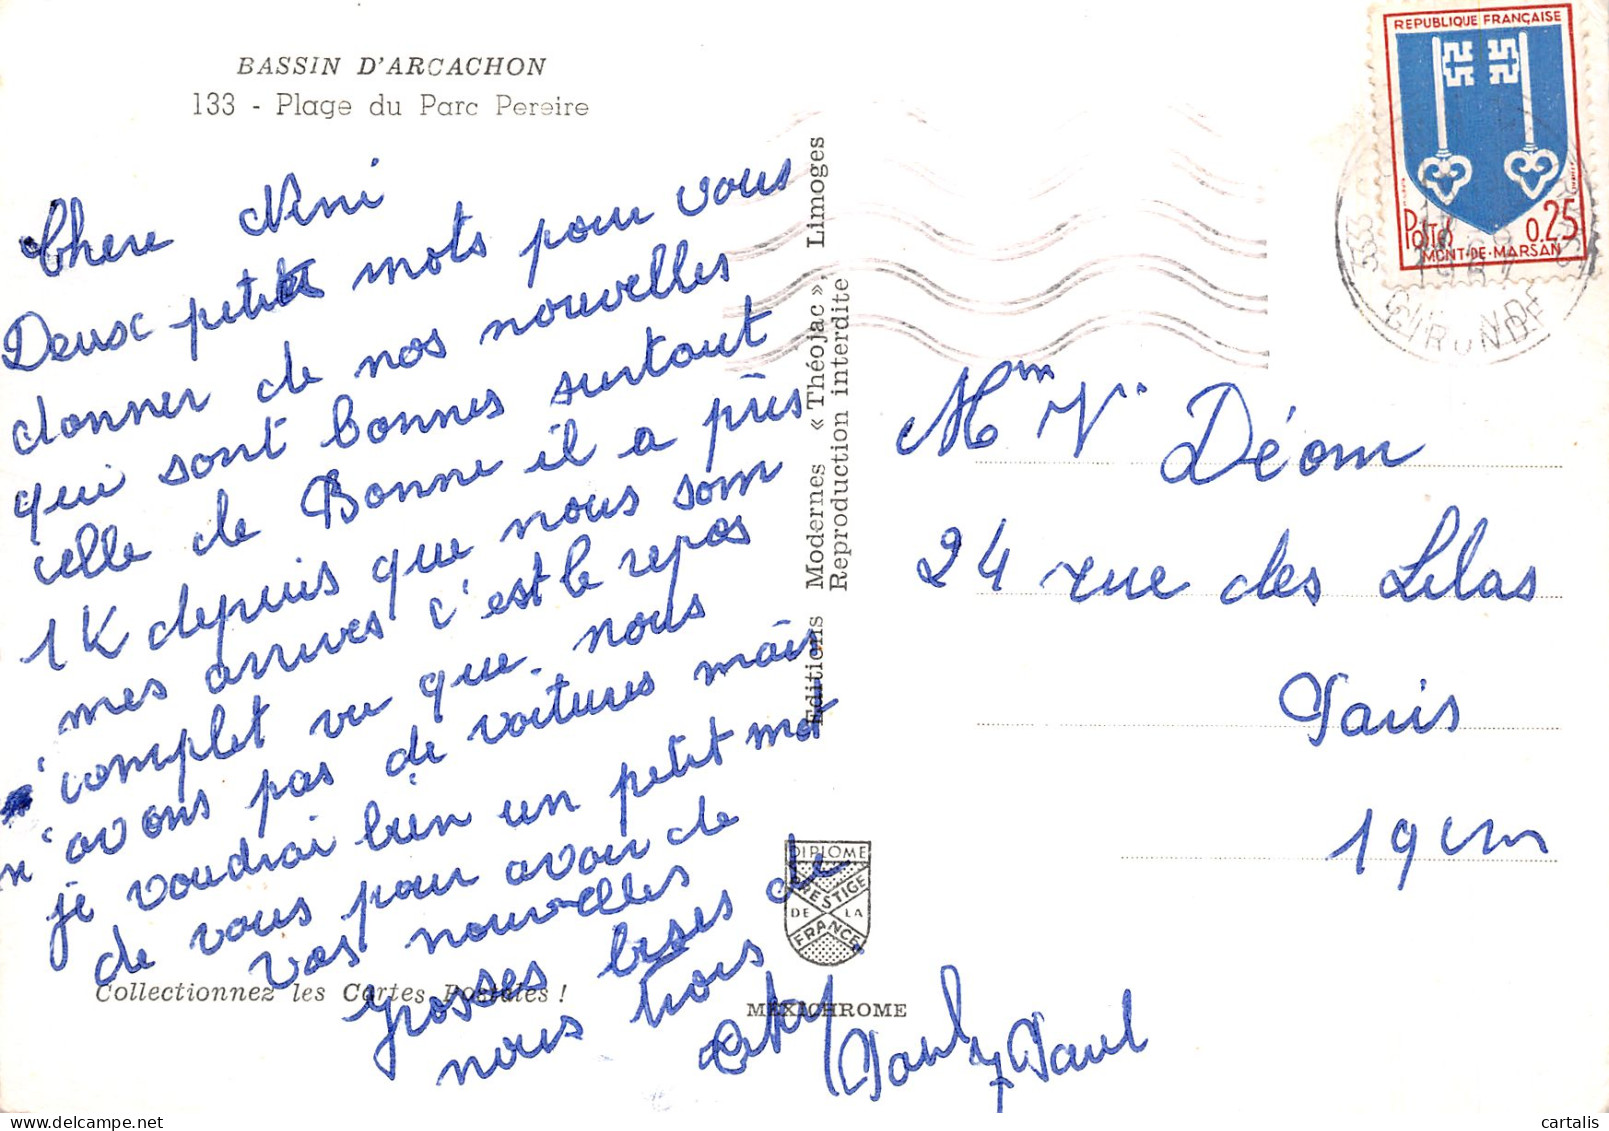 BASSIN D'ARCACHON
133 - Plage du Parc Pereire
Chere Nini
Deux petits mots pour vous
donner de nos nouvelles
qui sont bonnes surtout
celle de Bonne il a près
1K depuis que nous som
mes arrives c'est le repos
complet vu que nous
n'avons pas de voitures mais
je voudrai bien un petit mot
de vous pour avoir de
vos nouvelles
grosses bises de
nous trois
Paul
Collectionnez les Cartes Postales !
Editions Modernes « Théojac », Limoges
Reproduction interdite
DIPLOME
PRESTIGE
DE LA
FRANCE
MEXICHROME
REPUBLIQUE FRANÇAISE
Postes 0.25
MONT-DE-MARSAN
GIRONDE
Mme Ve Déom
24 rue des Lilas
Paris
19em
cartalis